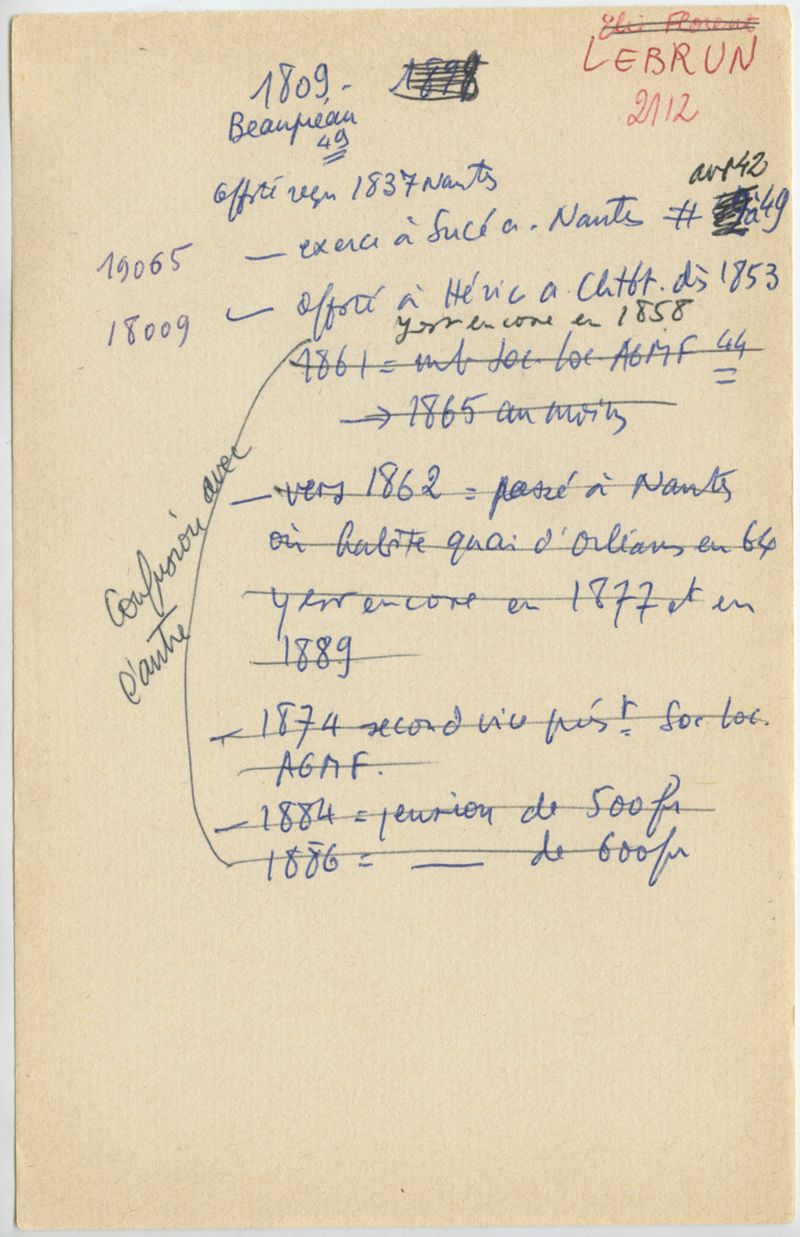 Elie Florent
LEBRUN
2112
1809 - 1898
Beaupréau
49
Offté reçu 1837 Nantes
avt 42
19065 — exerce à Sucé a. Nantes # à 49
18009 — offté à Héric a Chtbt. dès 1853
y est encore en 1858
1861 = mb Soc. loc AGMF 44
→ 1865 au moins
— vers 1862 = passé à Nantes
où habite quai d'Orléans en 64
y est encore en 1877 et en
1889
Confusion avec
l'autre
— 1874 second vice prést Soc loc.
AGMF.
— 1884 = pension de 500 fr
1886 = —— de 600 fr